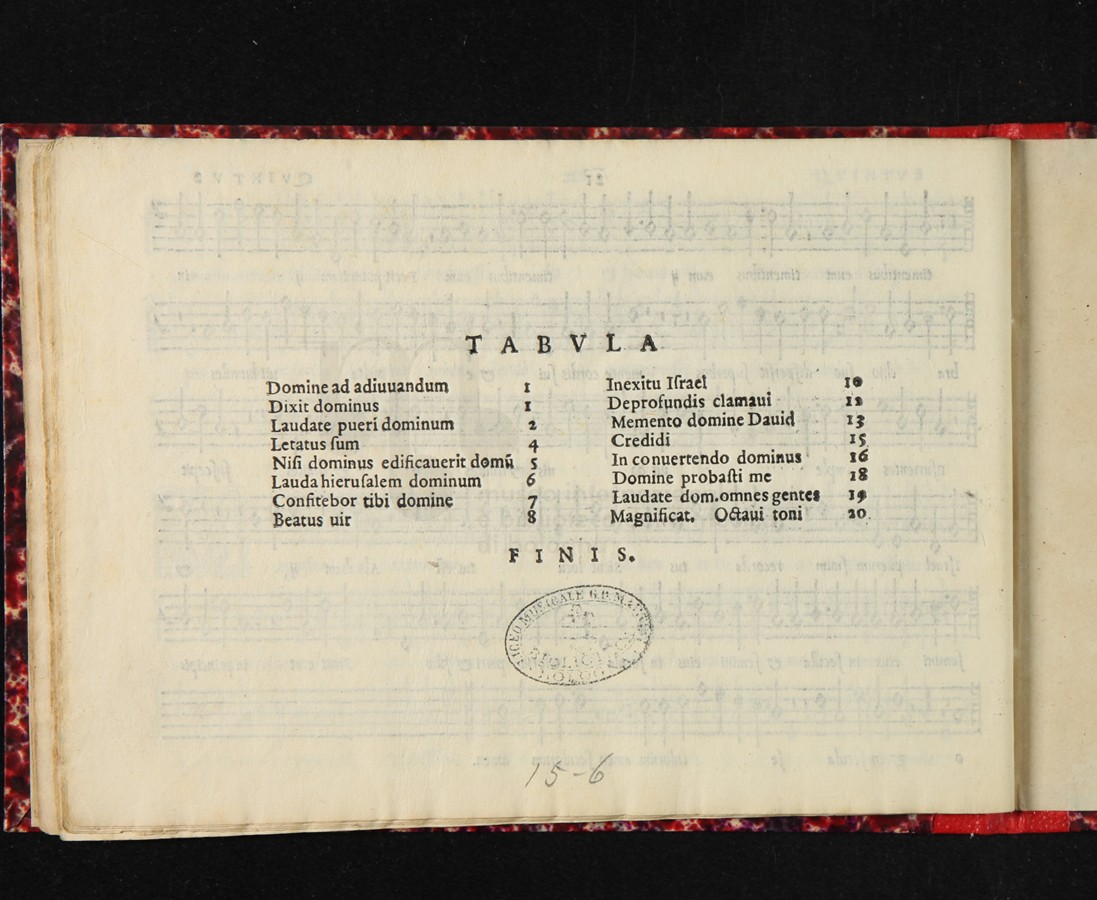 TABVLA
Domine ad adiuuandum 1
Dixit dominus 1
Laudate pueri dominum 2
Letatus ſum 4
Niſi dominus edificauerit domū 5
Lauda hieruſalem dominum 6
Confitebor tibi domine 7
Beatus uir 8
Inexitu Iſrael 10
Deprofundis clamaui 12
Memento domine Dauid 13
Credidi 15
In conuertendo dominus 16
Domine probaſti me 18
Laudate dom. omnes gentes 19
Magnificat. Octaui toni 20
FINIS.
LICEO MUSICALE G.B. MARTINI
BOLOGNA
15-6